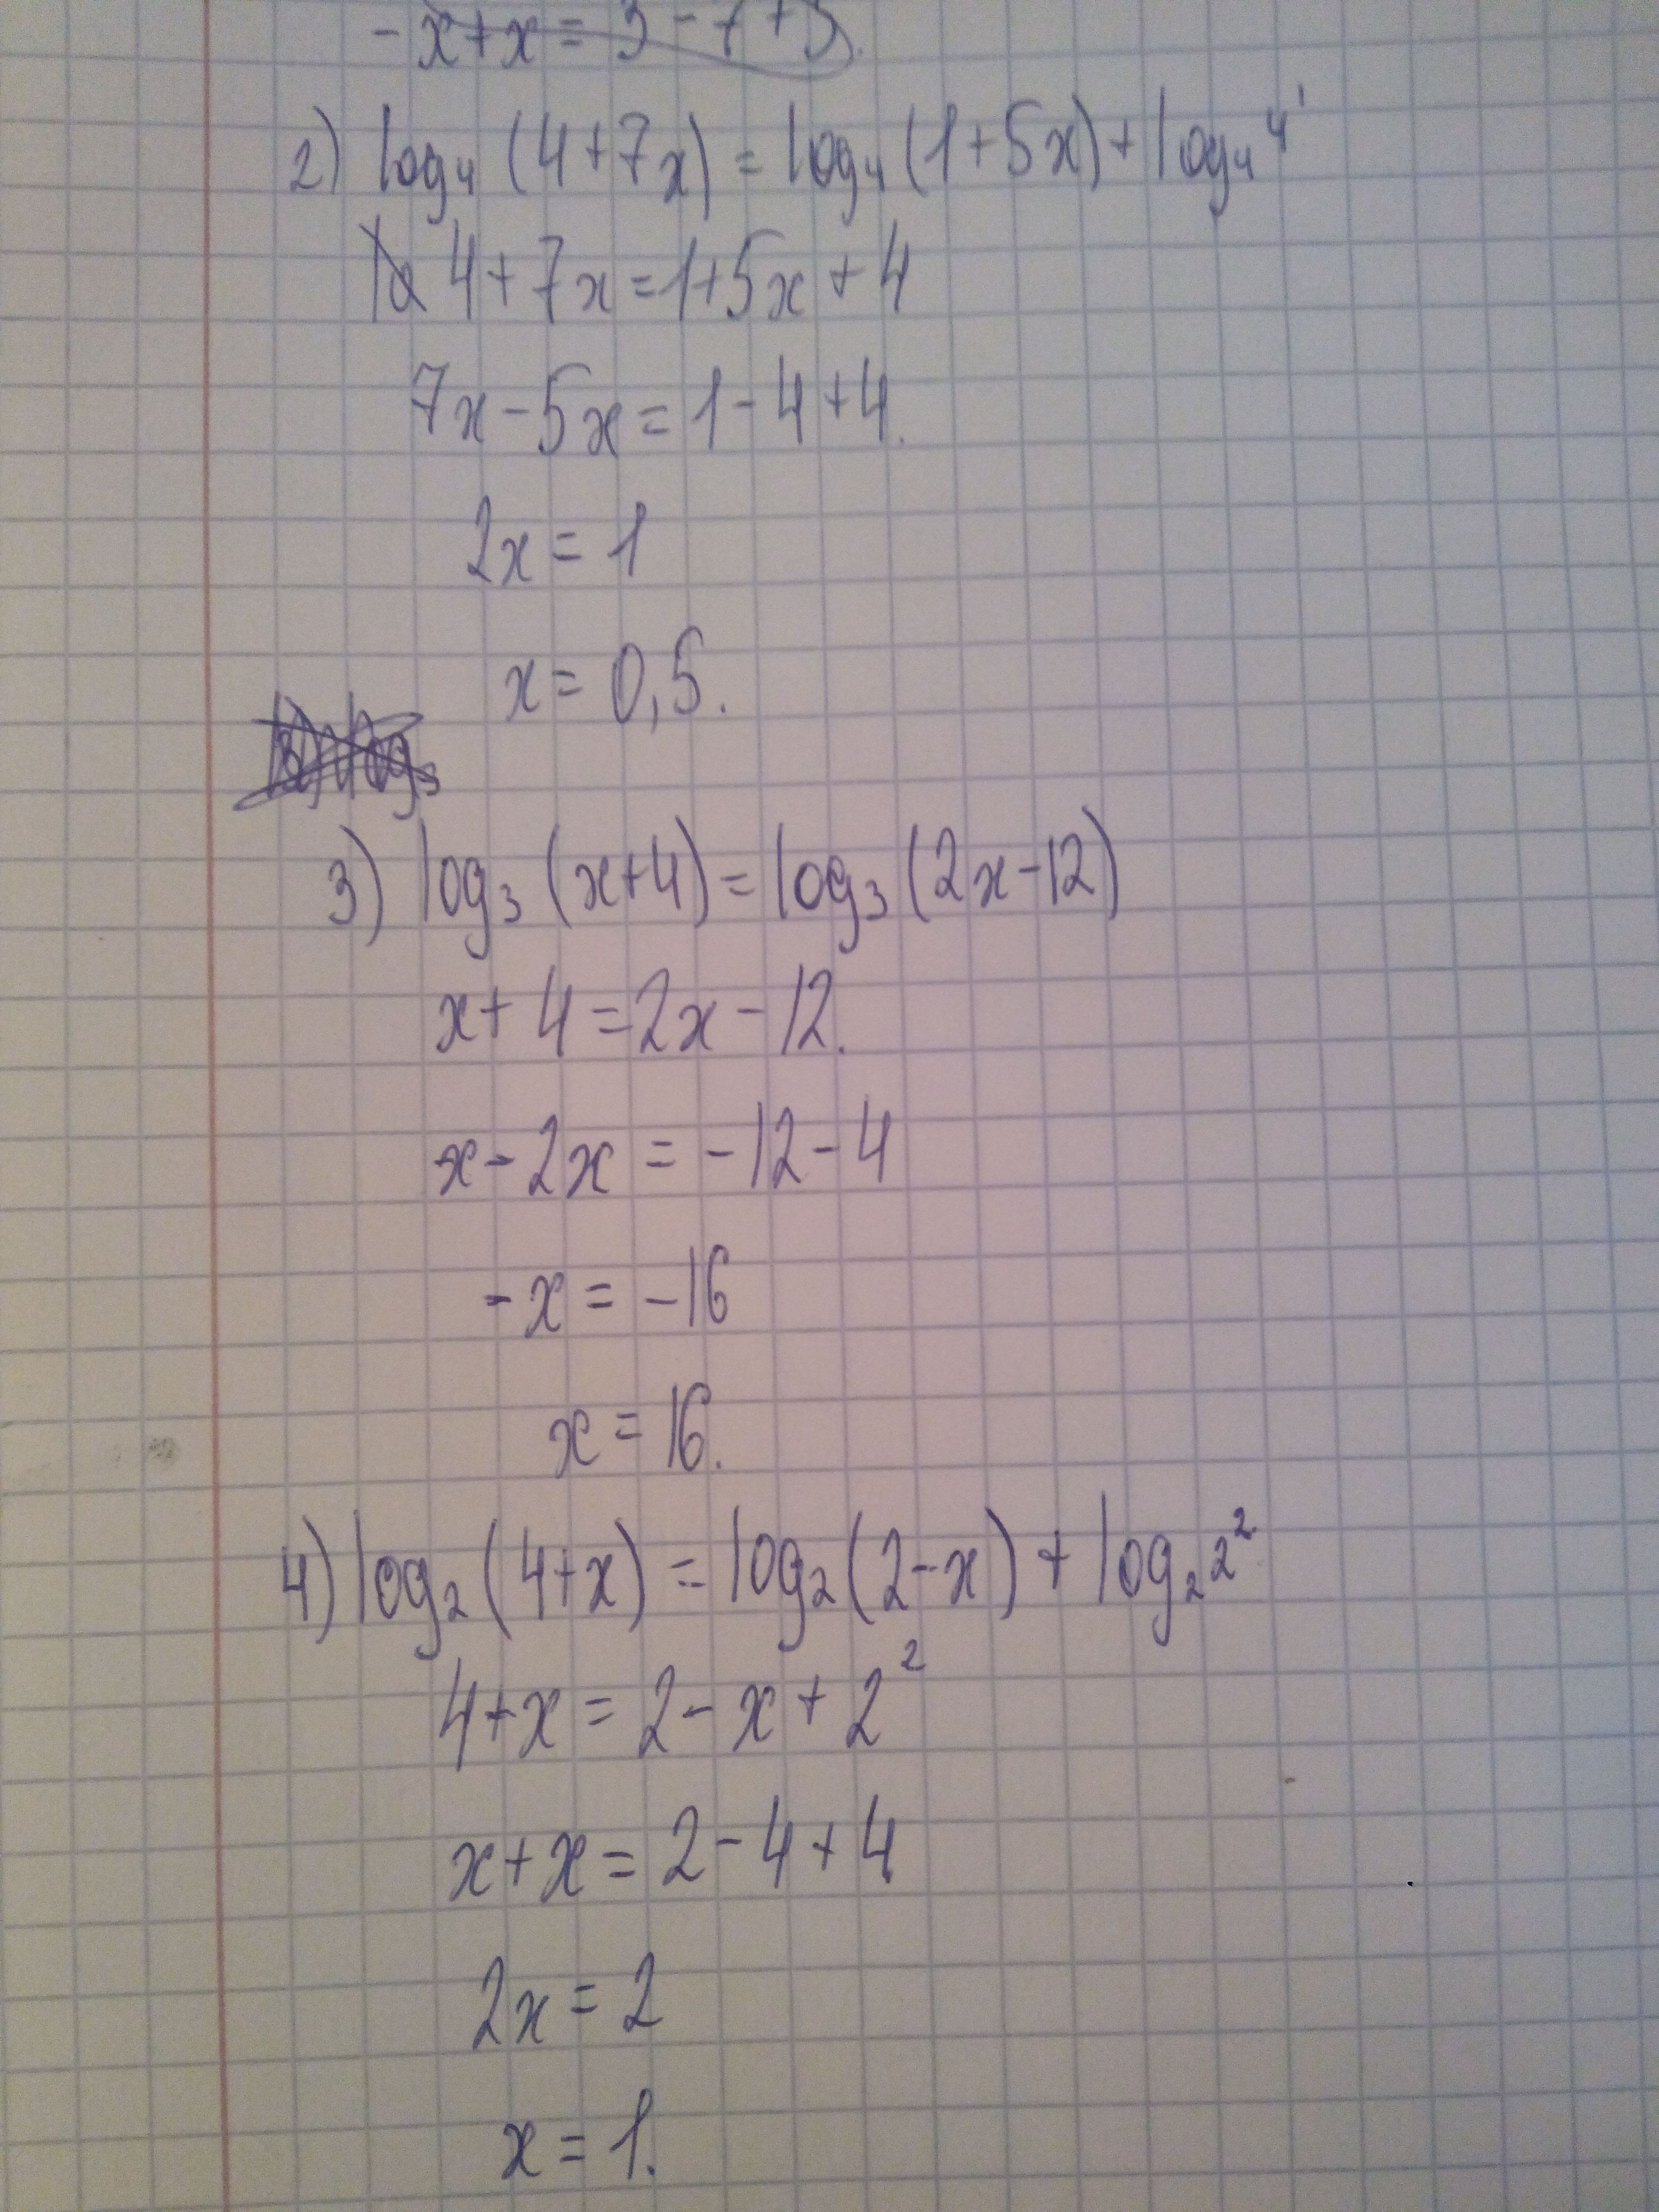 -x+x = 3-7+3.
2) log₄ (4+7x) = log₄ (1+5x) + log₄ 4¹
4+7x=1+5x+4
7x-5x=1-4+4.
2x=1
x=0,5.
3) log₃
3) log₃ (x+4)=log₃ (2x-12)
x+4=2x-12.
x-2x=-12-4
-x=-16
x=16.
4) log₂ (4+x) = log₂ (2-x) + log₂ 2²
4+x=2-x+2²
x+x=2-4+4
2x=2
x=1.